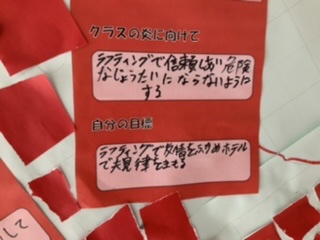 クラスの炎に向けて
ラフティングで信頼しあい危険
なじょうたいにならないように
する
自分の目標
ラフティングで友情をふかめホテル
で規律をまもる
して